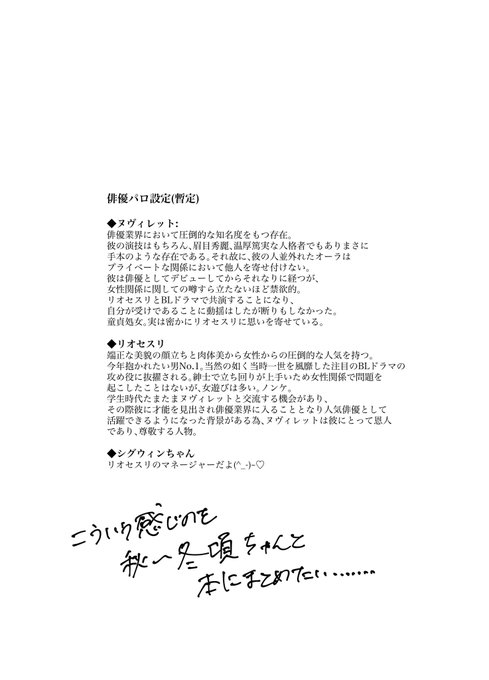 俳優パロ設定(暫定)
◆ヌヴィレット:
俳優業界において圧倒的な知名度をもつ存在。
彼の演技はもちろん、眉目秀麗、温厚篤実な人格者でもありまさに
手本のような存在である。それ故に、彼の人並外れたオーラは
プライベートな関係において他人を寄せ付けない。
彼は俳優としてデビューしてからそれなりに経つが、
女性関係に関しての噂すら立たないほど禁欲的。
リオセスリとBLドラマで共演することになり、
自分が受けであることに動揺はしたが断りもしなかった。
童貞処女。実は密かにリオセスリに思いを寄せている。
◆リオセスリ
端正な美貌の顔立ちと肉体美から女性からの圧倒的な人気を持つ。
今年抱かれたい男No.1。当然の如く当時一世を風靡した注目のBLドラマの
攻め役に抜擢される。紳士で立ち回りが上手いため女性関係で問題を
起こしたことはないが、女遊びは多い。ノンケ。
学生時代たまたまヌヴィレットと交流する機会があり、
その際彼に才能を見出され俳優業界に入ることとなり人気俳優として
活躍できるようになった背景がある為、ヌヴィレットは彼にとって恩人
であり、尊敬する人物。
◆シグウィンちゃん
リオセスリのマネージャーだよ(^_-)-♡
こういう感じのを
秋〜冬頃ちゃんと
本にまとめたい.......